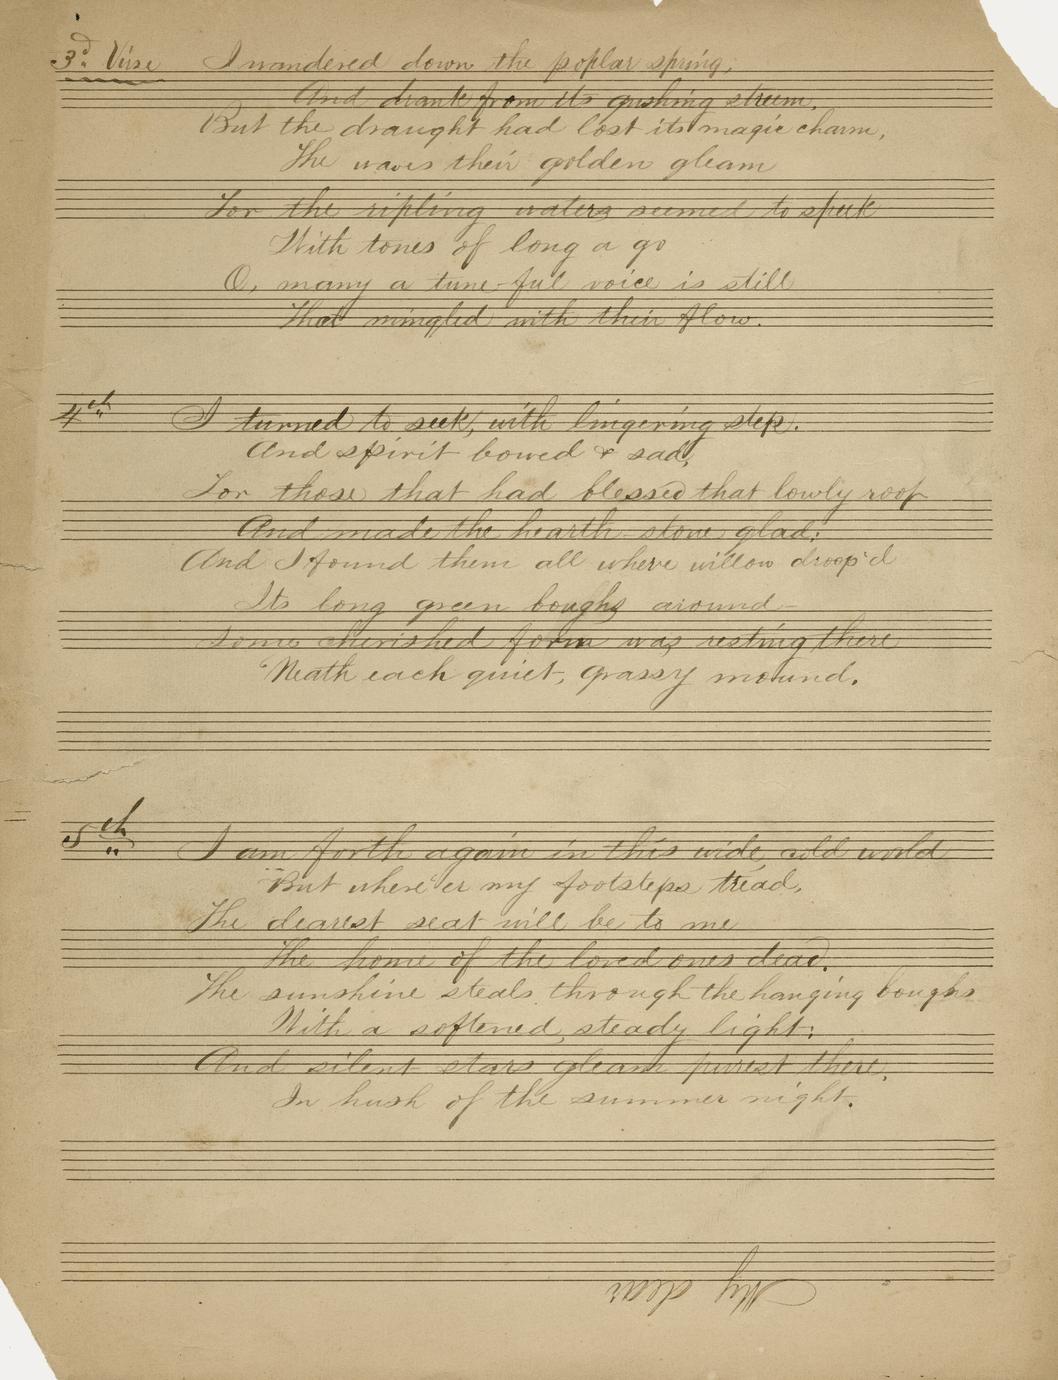 3d Virse I wandered down the poplar spring,
And drank from its gushing streem,
But the draught had lost its magic charm,
The waves their golden gleam
For the ripling waters seemed to speek
With tones of long a go
O, many a tune-ful voice is still
That mingled with their flow.
4th I turned to seek, with lingering step.
And spirit bowed & sad,
For those that had blessed that lowly roof
And made the hearth-stone glad;
And I found them all where willow droop'd
Its long green boughs around-
Some cherished form was resting there
'Neath each quiet, grassy mound.
5th I am forth again in this wide, cold world
But where'er my footsteps tread,
The dearest seat will be to me
The home of the loved ones dead.
The sunshine steals through the hanging boughs
With a softened, steady light;
And silent stars gleam purest there,
In hush of the summer night.
My dear